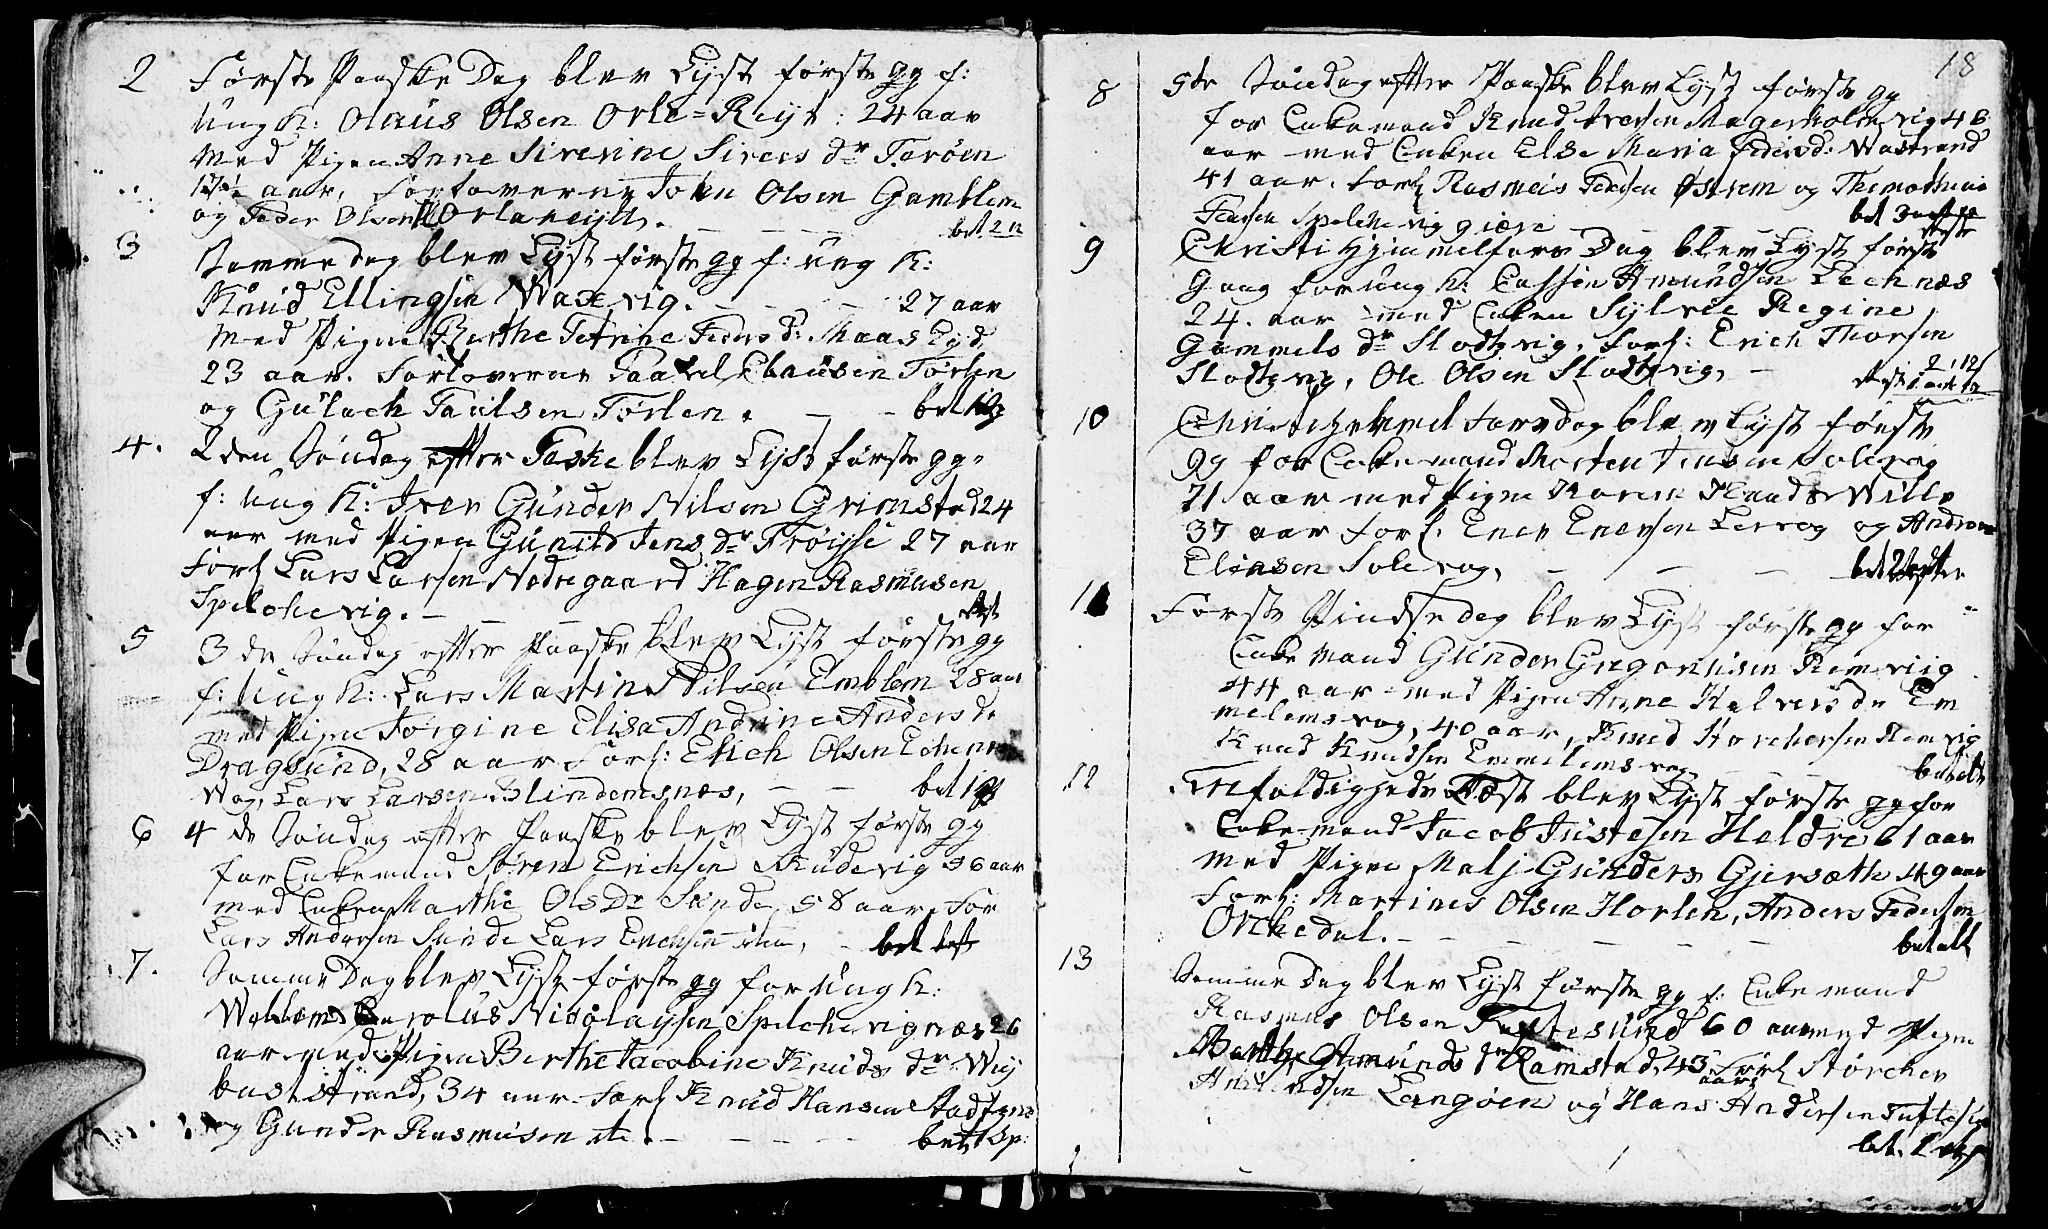 2 Første Paaske Dag blev Lyst første gg f:
Ung K: Olaus Olsen Orle=Reyt: 24 aar
med Pigen Anne Siverine Sivers dr Tarøen
aar, Forloverne John Olsen Gamblem
og Peder Olsen Orlaneyth. bet 2
3 Samme dag blev Lyst første gg f: ung K:
Knud Ellingsen Waxvig. 27 aar
med Pigen Berthe Petrine Peders d: Maas Eyd
23 aar. Forloverne Paavel Clausen Tørlen
og Gulach Paulsen Tørlen. bet
4. 2den Søndag efter Paske blev Lyst første gg
f: Ung K: Iver Gunder Nilsen Grimstad 24
aar med Pigen Gunild Jens dr Frøysse 27 aar
Forl Lars Larsen Nedregaard Hagen Rasmusen
Spilchevig.
5 3de Søndag efter Paaske blev Lyst første gg
f: Ung K: Lars Martin Nilsen Emblem 28 aar
med Pigen Jørgine Elisa Andrine Anders dr
Dragsund, 28 aar Forl: Erich Olsen
Wog, Lars Larsen Blindemsnæs, bet
6 4de Søndag efter Paaske blev Lyst første gg
for Enkemand Søren Erichsen Rudevig 36 aar
med Enken Marthe Ols Dr Sunde 58 aar, For
Lars Andersen Sunde Lars Erichsen bet
7. Samme Dag blev Lyst første gg for ung K:
Carolus Nicolaysen Spilchevignæs 26
aar med Pigen Berthe Jacobine Knuds dr Wey
bustStrand, 34 aar. Forl Knud Hansen
og Gunder Rasmusen bet 1 Sp:
18
8 5te Søndag efter Paaske blev Lyst første gg
for Enkemand Knud Iversen Magerholmvig 46
aar med Enken Else Maria Peders d: Wastrand
41 aar. Forl Rasmus Pedersen Østrem og
Spilchevig bet
9 Christi Himmelfars Dag blev Lyst første
Gang for ung K: Amundsen Lechnæs
24. aar med Enken Sylvie Regine
Gammels dr Slodtzvig. Forl: Erich Thorsen
Slodtzvig, Ole Olsen Slodtzvig,
10 Christi himmel farsdag blev Lyst første
gg for Enkemand Morten Jensen Solevog
71 aar med Pigen Karen Knuds
37 aar Forl: Ener Enersen Lervog og Andreas
Eliasen Solevog, bet
11 Første Pindse dag blev Lyst første gg for
Enke mand Gunder Gregoriusen Remvig
44 aar med Pigen Anne Halvers dr Em
melemsvog, 40 aar, Knud Storchersen Remvig
Knud Knudsen Emmelemsvog betalt
12 Trefoldigheds Fæst blev Lyst første gg for
Enkemand Jacob Justesen Heldre 61 aar
med Pigen Malj Gunders Gjersæth 49 aar
Forl: Martines Olsen Horlen, Anders Pedersen
Orskedal. betalt
13 Samme Dag blev Lyst første gg f: Enkemand
Rasmus Olsen Tuftesund 60 aar med Pigen
Amunds dr Ramstad, 43 aar, Forl Storcher
Langøen og Hans Andersen Tuftesund
bet.